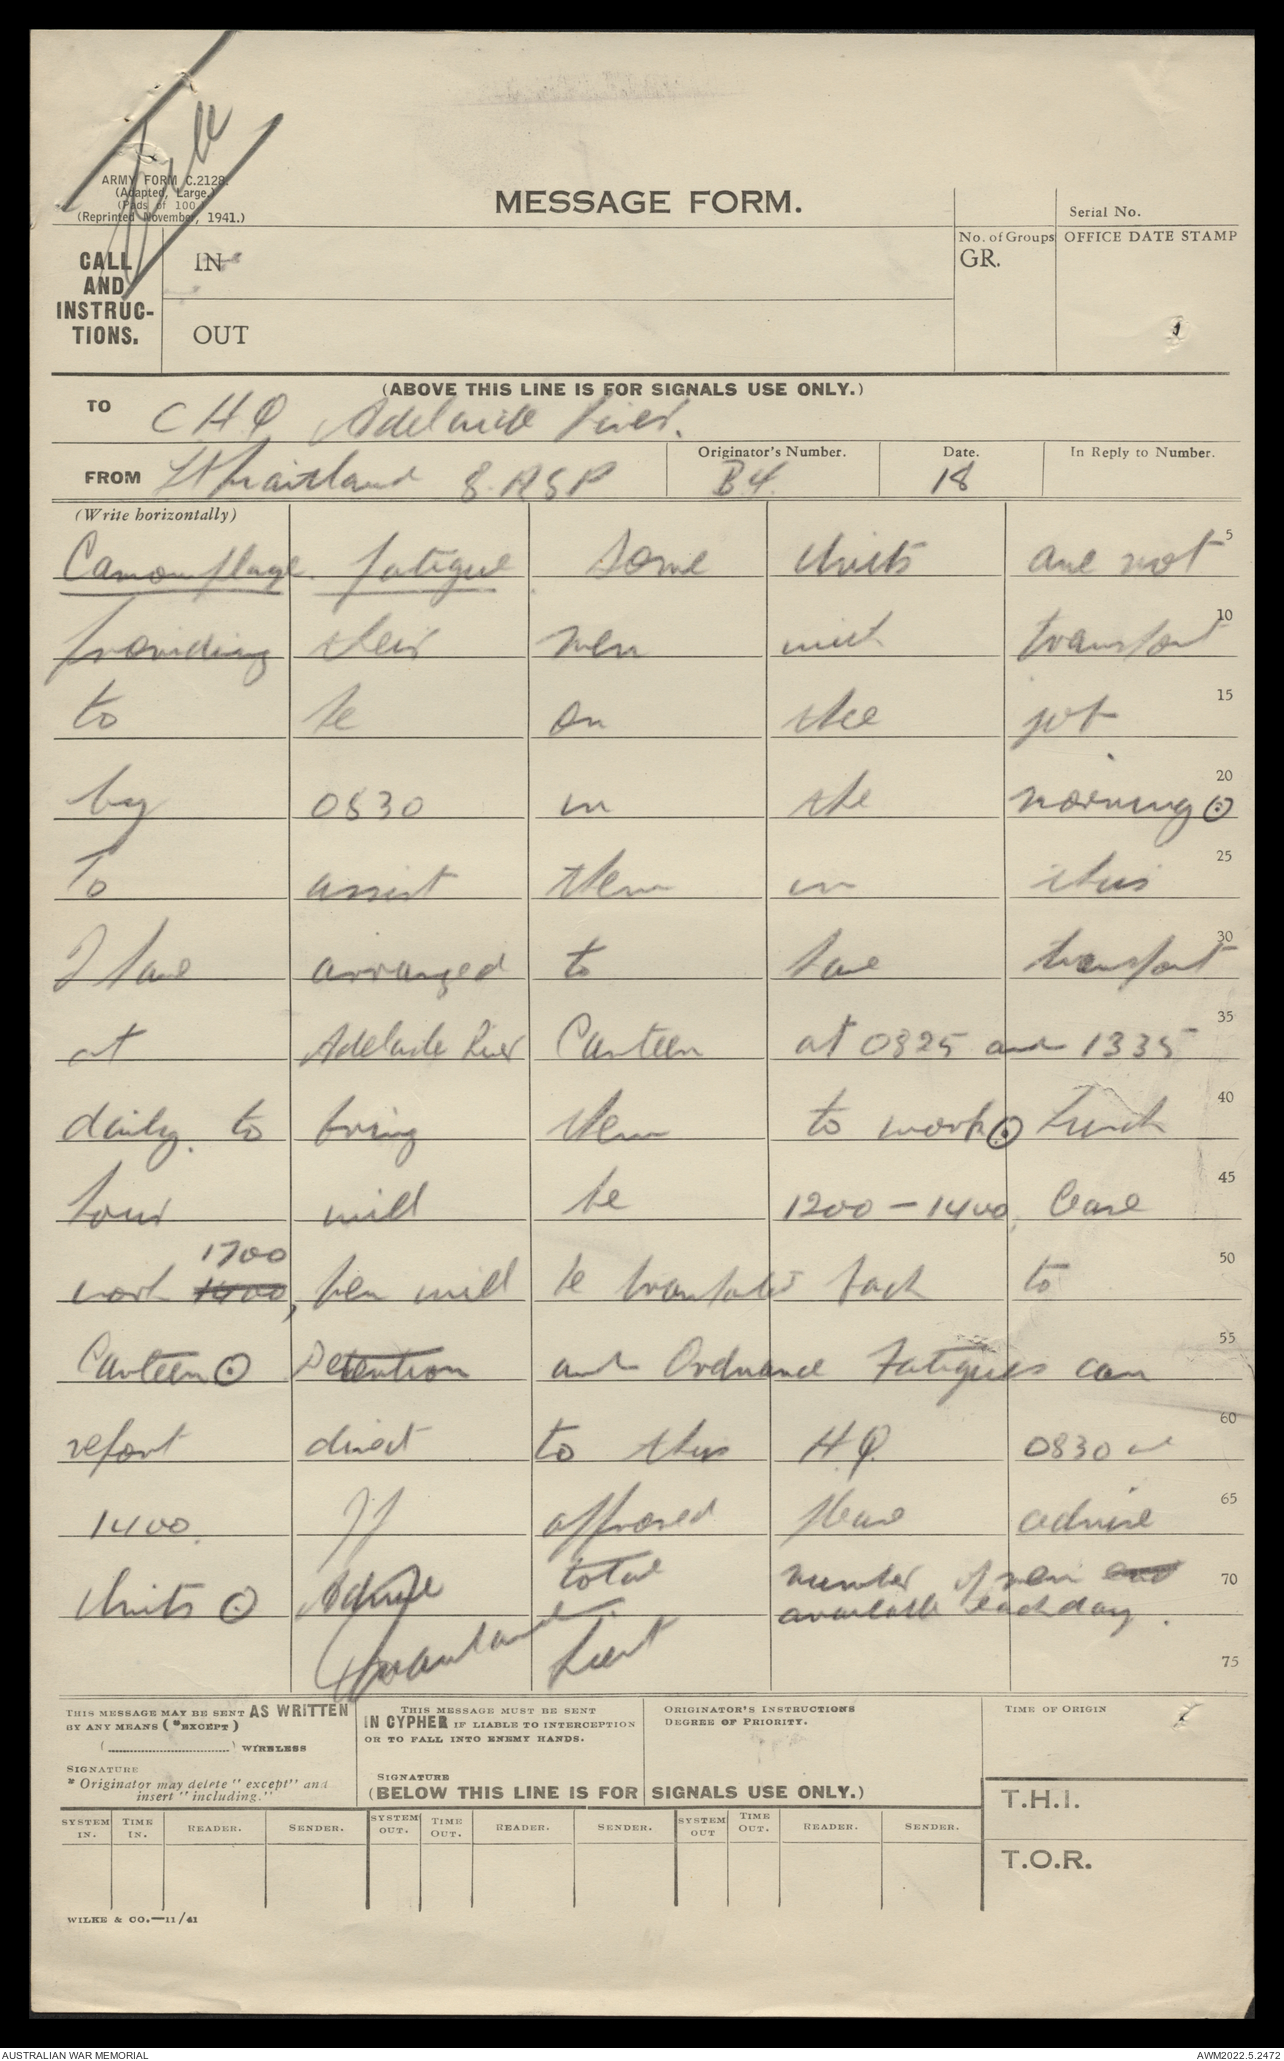 File
ARMY FORM C.2128.
(Adapted, Large.)
(Pads of 100.)
(Reprinted November, 1941.)
MESSAGE FORM.
Serial No.
CALL AND INSTRUC-TIONS.
IN
OUT
No. of Groups
GR.
OFFICE DATE STAMP
(ABOVE THIS LINE IS FOR SIGNALS USE ONLY.)
TO C H.Q. Adelaide River.
FROM Lt Maitland 8. ASP
Originator's Number. B4.
Date. 18
In Reply to Number.
(Write horizontally)
Camouflage. fatigue some Units are not 5
providing their men with transport 10
to be on the job 15
by 0830 in the morning ⊙ 20
To assist them in this 25
I have arranged to have transport 30
at Adelaide River Canteen at 0825 and 1335 35
daily. to bring them to work ⊙ Lunch 40
hour will be 1200 - 1400. Cease 45
1700
work 1400, Men will be transported back to 50
Canteen ⊙ Detention and Ordnance Fatigues can 55
report direct to this H.Q. 0830 & 60
1400. If approved please advise 65
Units ⊙ Advise total number of men and 70
available each day.
Maitland Lieut
75
THIS MESSAGE MAY BE SENT AS WRITTEN
BY ANY MEANS (*EXCEPT)
(..............................) WIRELESS
SIGNATURE
* Originator may delete "except" and
insert "including."
THIS MESSAGE MUST BE SENT
IN CYPHER IF LIABLE TO INTERCEPTION
OR TO FALL INTO ENEMY HANDS.
SIGNATURE
ORIGINATOR'S INSTRUCTIONS
DEGREE OF PRIORITY.
TIME OF ORIGIN
(BELOW THIS LINE IS FOR SIGNALS USE ONLY.)
T.H.I.
SYSTEM IN. TIME IN. READER. SENDER. SYSTEM OUT. TIME OUT. READER. SENDER. SYSTEM OUT TIME OUT. READER. SENDER.
T.O.R.
WILKE & CO.—11/41
AUSTRALIAN WAR MEMORIAL
AWM2022.5.2472